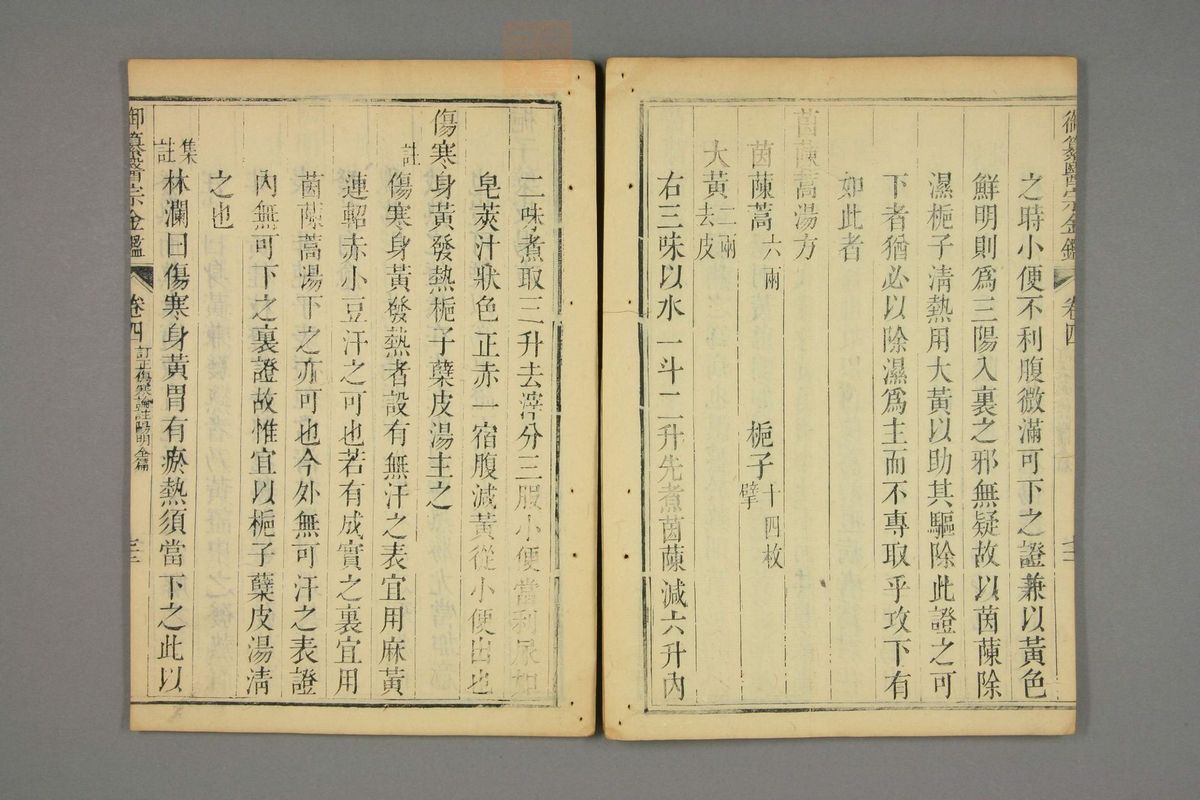 御纂醫宗金鑑 卷四
之時小便不利腹微滿可下之證兼以黃色
鮮明則爲三陽入裏之邪無疑故以茵蔯除
濕梔子清熱用大黃以助其驅除此證之可
下者猶必以除濕爲主而不專取乎攻下有
如此者
茵蔯蒿湯方
茵蔯蒿六兩 梔子十四枚擘
大黃二兩去皮
右三味以水一斗二升先煮茵蔯減六升內
二味煮取三升去滓分三服小便當利尿如
皂莢汁狀色正赤一宿腹減黃從小便出也
傷寒身黃發熱梔子蘗皮湯主之
註
傷寒身黃發熱者設有無汗之表宜用麻黃
連軺赤小豆汗之可也若有成實之裏宜用
茵蔯蒿湯下之亦可也今外無可汗之表證
內無可下之裏證故惟宜以梔子蘗皮湯清
之也
集註
林瀾曰傷寒身黃胃有瘀熱須當下之此以
御纂醫宗金鑑 卷四 訂正傷寒論註陽明全篇